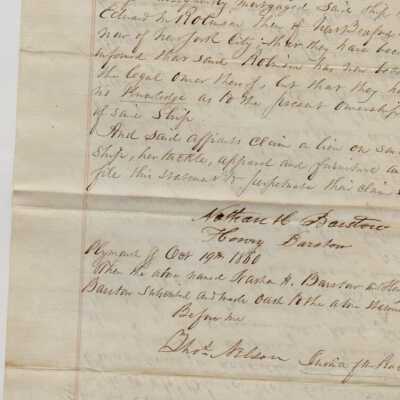 mortgaged said ship
Edward M. Robinson then of New Bedford
now of New York City that they have been
informed that said Robinson has now become
the legal owner thereof, but that they have
no Knowledge as to the present ownership
of said Ship
And said affiants claim a lien on said
Ship, her tackle, apparel and furniture and
file this statement to perpetuate their claim
Nathan H Barstow
Henry Barstow
Plymouth ss Oct 19th 1860
Then the above named Nathan H. Barstow and Henry
Barstow subscribed and made oath to the above statement
Before me
Thos. Nelson Justice of the Peace